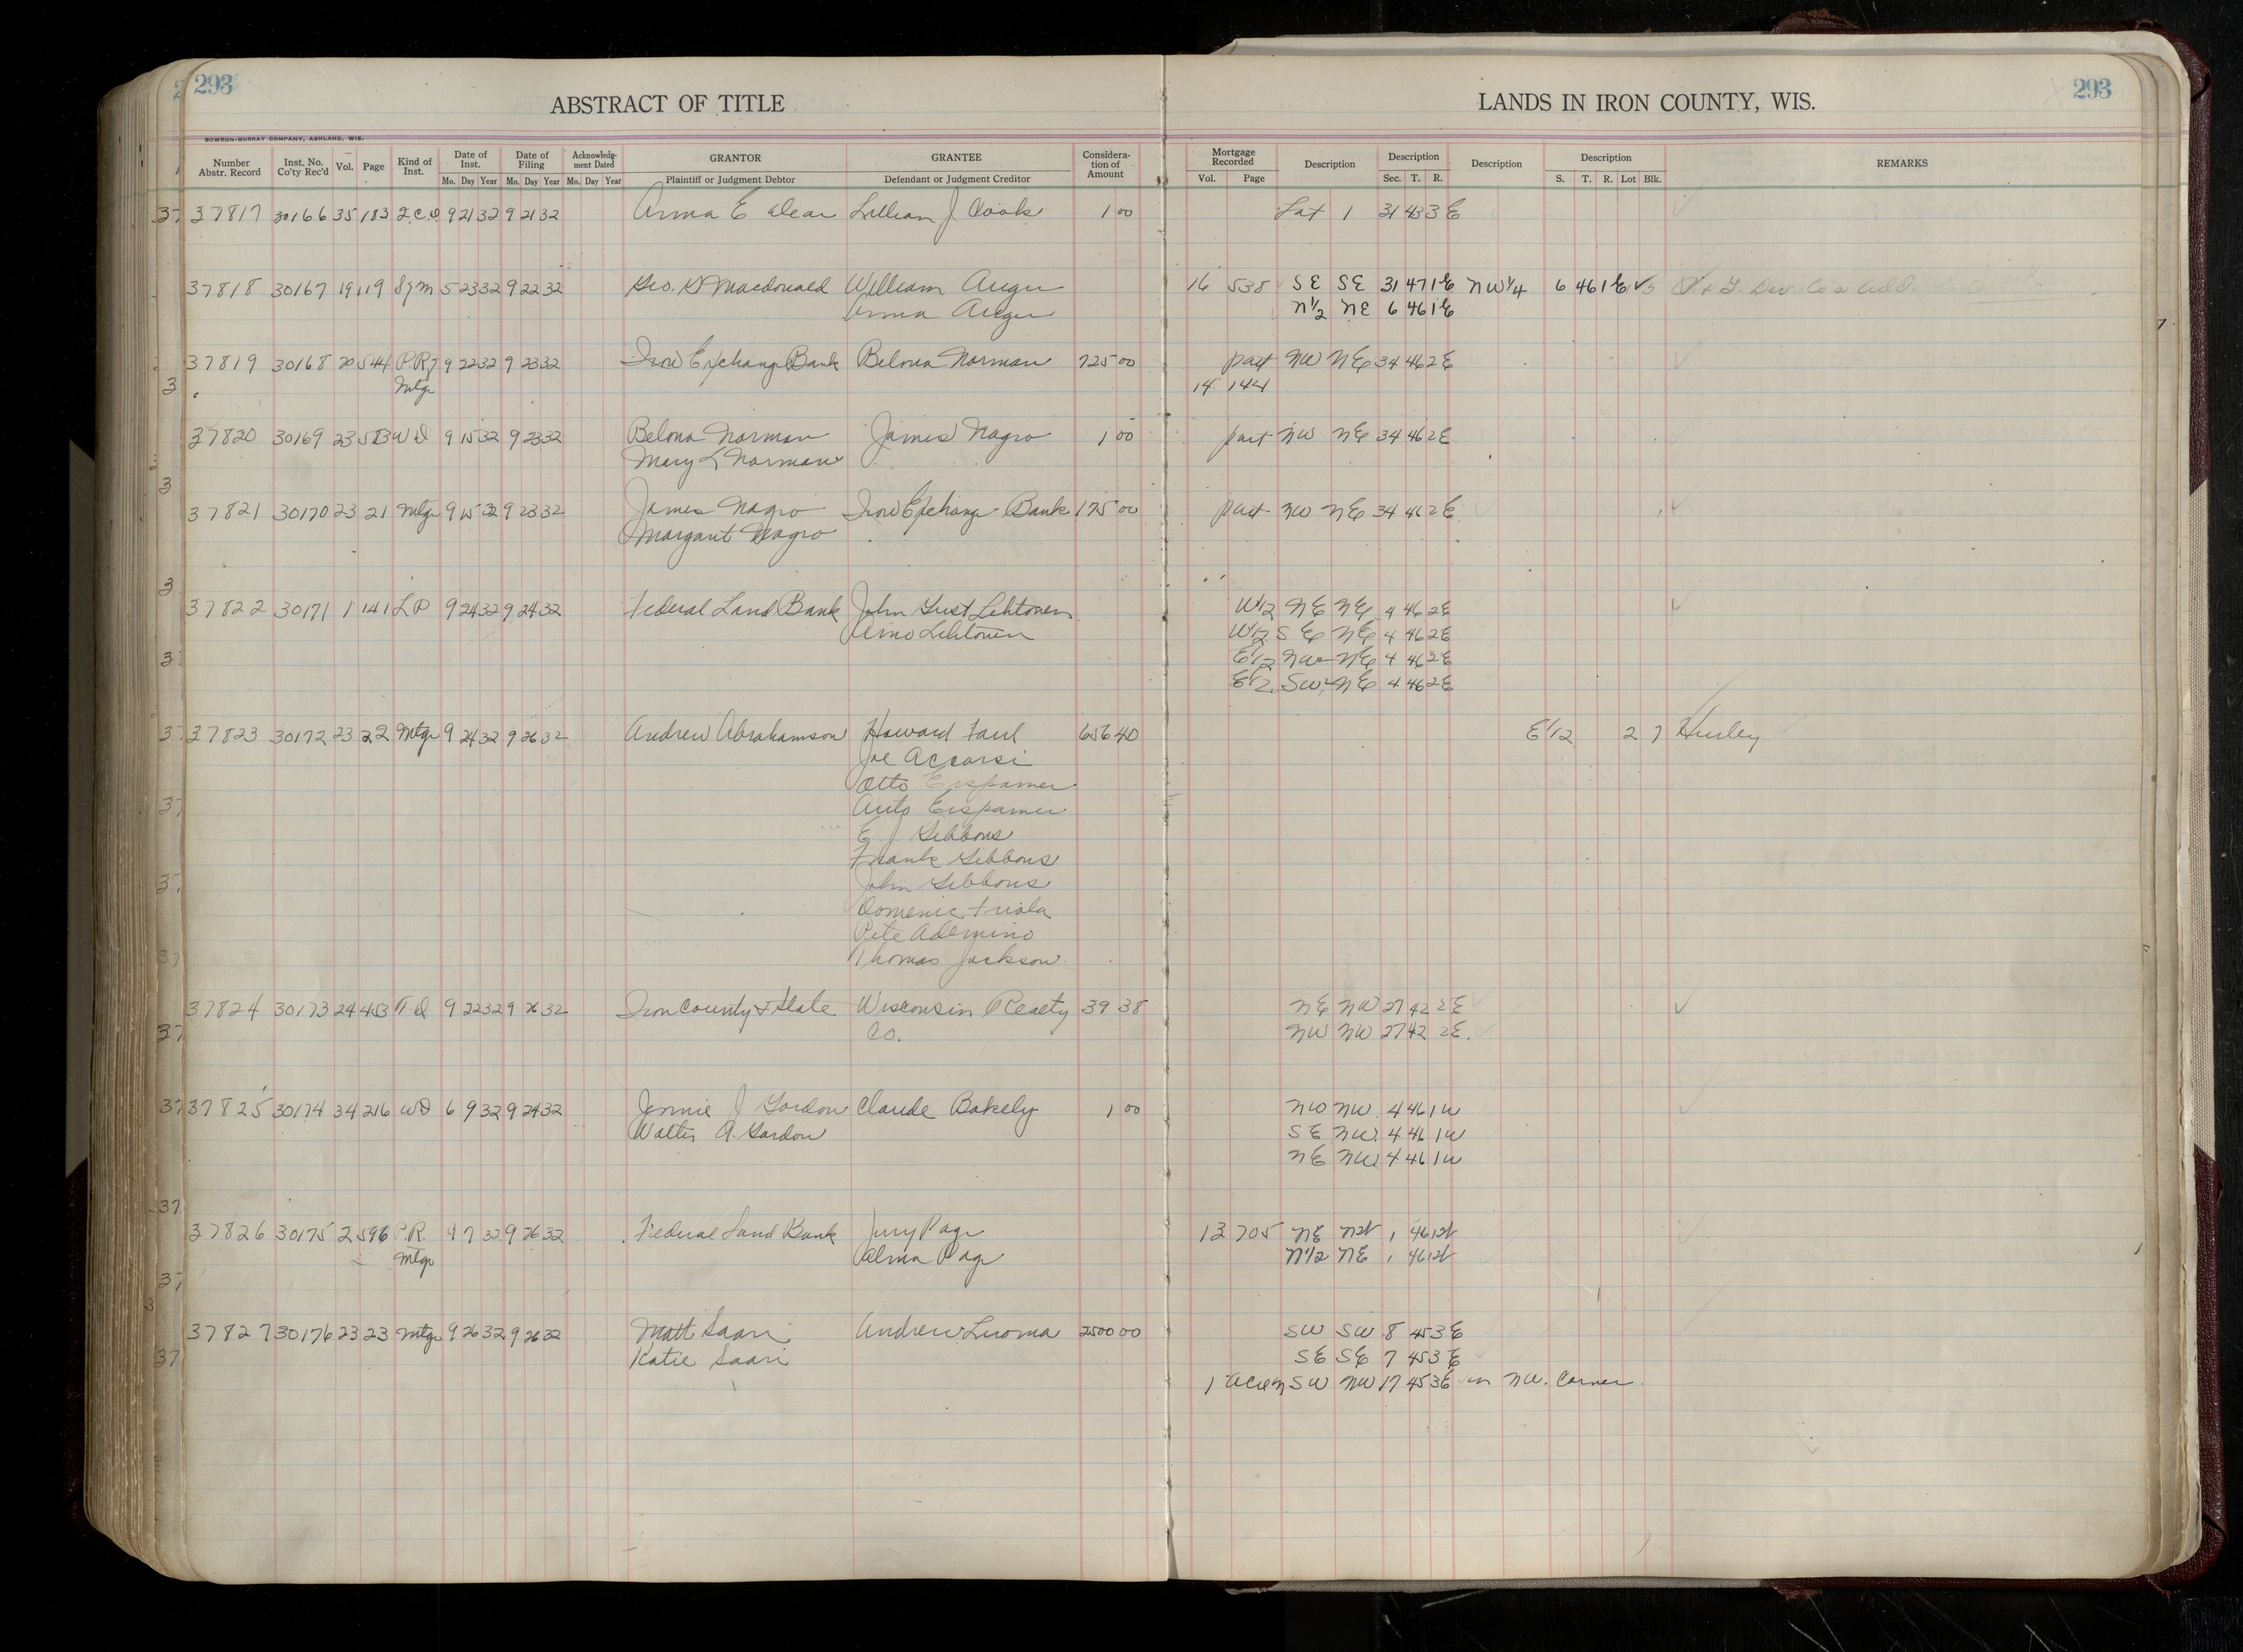 293
ABSTRACT OF TITLE
LANDS IN IRON COUNTY, WIS.
293
BOWRON-MURRAY COMPANY, ASHLAND, WIS.
Number Abstr. Record | Inst. No. Co'ty Rec'd | Vol. | Page | Kind of Inst. | Date of Inst. Mo. Day Year | Date of Filing Mo. Day Year | Acknowledgment Dated Mo. Day Year | GRANTOR Plaintiff or Judgment Debtor | GRANTEE Defendant or Judgment Creditor | Consideration of Amount | Mortgage Recorded Vol. Page | Description | Description Sec. T. R. | Description | Description S. T. R. Lot Blk. | REMARKS
37817 30166 35 183 Q.C.D. 9 21 32 9 21 32 Anna E Dear Lillian J Cook 1 00 Lot 1 31 43 3 E
37818 30167 19 119 Sgm 5 23 32 9 22 32 Geo. G Macdonald William Auger 16 538 SE SE 31 47 1 E NW 1/4 6 46 1 E
Anna Auger N 1/2 NE 6 46 1 E
37819 30168 20 544 P.R. 9 22 32 9 23 32 Iron Exchange Bank Belona Norman 725 00 part NW NE 34 46 2 E
Mtge 14 144
37820 30169 23 583 WD 9 15 32 9 23 32 Belona Norman James Nagro 1 00 part NW NE 34 46 2 E
Mary L Norman
37821 30170 23 21 Mtge 9 15 32 9 23 32 James Nagro Iron Exchange Bank 175 00 part NW NE 34 46 2 E
Margaret Nagro
37822 30171 1 141 LP 9 24 32 9 24 32 Federal Land Bank John Gust Lehtonen W 1/2 NE NE 4 46 2 E
Aino Lehtonen W 1/2 SE NE 4 46 2 E
E 1/2 NW NE 4 46 2 E
E 1/2 SW NE 4 46 2 E
37823 30172 23 22 Mtge 9 24 32 9 26 32 Andrew Abrahamson Howard 656 40 E 1/2 2 7 Hurley
Joe Accorsi
Otto Erspamer
Auto Erspamer
E J Gibbons
Frank Gibbons
John Gibbons
Domenic Triola
Pete Ademino
Thomas Jackson
37824 30173 24 453 T.D. 9 22 32 9 26 32 Iron County & State Wisconsin Realty 39 38 NE NW 27 42 2 E
Co. NW NW 27 42 2 E.
37825 30174 34 216 WD 6 9 32 9 24 32 Jennie J Gordon Claude Bakely 1 00 NW NW 4 46 1 W
Walter A. Gordon SE NW 4 46 1 W
NE NW 4 46 1 W
37826 30175 2 596 P.R. 9 7 32 9 26 32 Federal Land Bank Jury Page 13 705 NE NW 1 46 1 W
Mtge Alma Page N 1/2 NE 1 46 1 W
37827 30176 23 23 Mtge 9 26 32 9 26 32 Matt Saari Andrew Luoma 2500 00 SW SW 8 45 3 E
Katie Saari SE SE 7 45 3 E
1 acre in SW NW 17 45 3 E in NW. Corner